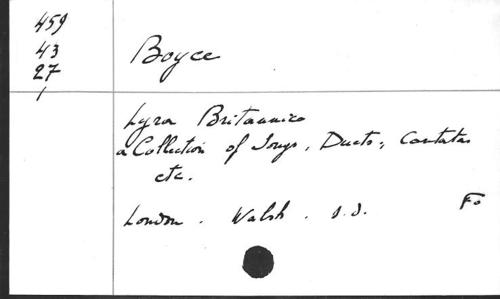 459
43
27
1
Boyce
Lyra Britannica
a Collection of Songs, Duets, Cantatas
etc.
London. Walsh. s.d. Fo